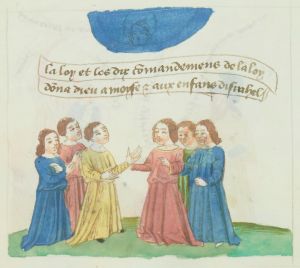 la loy et les dix cõmandemens de la loy
dõna dieu a moyse & aux enfans disrahel